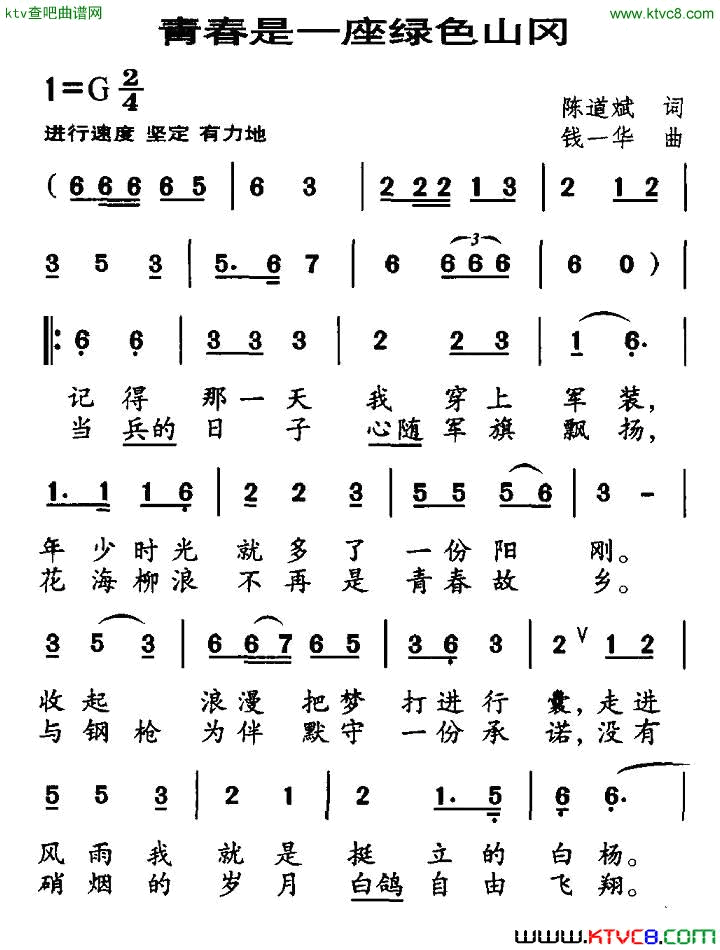 ktv查吧曲谱网
www.ktvc8.com
青春是一座绿色山冈
1=G 2/4
陈道斌 词
进行速度 坚定 有力地
钱一华 曲
( 6 6 6 6 5 | 6 3 | 2 2 2 1 3 | 2 1 2 |
3 5 3 | 5. 6 7 | 6 6 6 6 | 6 0 ) |
3
‖: 6 6 | 3 3 3 | 2 2 3 | 1 6. |
记得那一天我穿上军装,
当兵的日子心随军旗飘扬,
1. 1 1 6 | 2 2 3 | 5 5 5 6 | 3 - |
年少时光就多了一份阳刚。
花海柳浪不再是青春故乡。
3 5 3 | 6 6 7 6 5 | 3 6 3 | 2 ∨ 1 2 |
收起浪漫把梦打进行囊,走进
与钢枪为伴默守一份承诺,没有
5 5 3 | 2 1 | 2 1. 5 | 6 6. |
风雨我就是挺立的白杨。
硝烟的岁月白鸽自由飞翔。
www.KTVC8.com